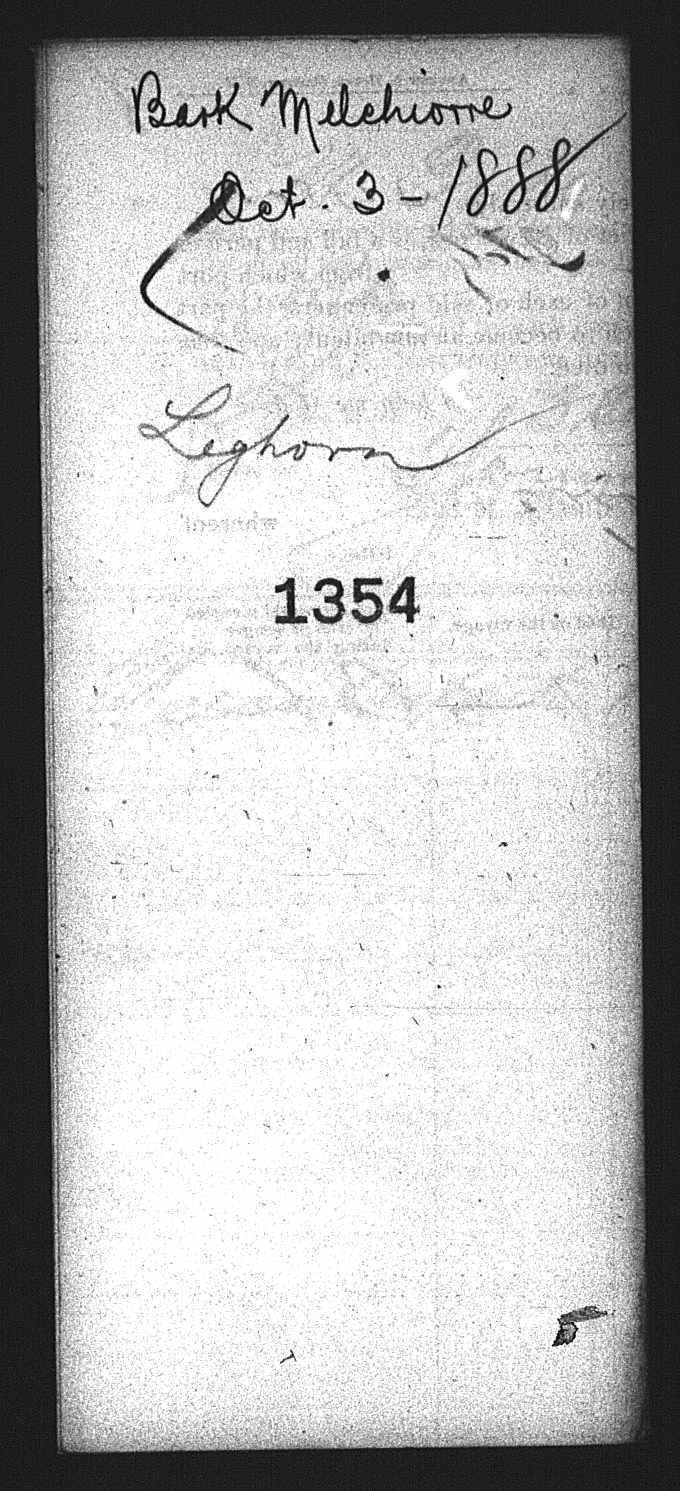 Bark Melchiorre
Oct. 3 - 1888
Leghorn
1354